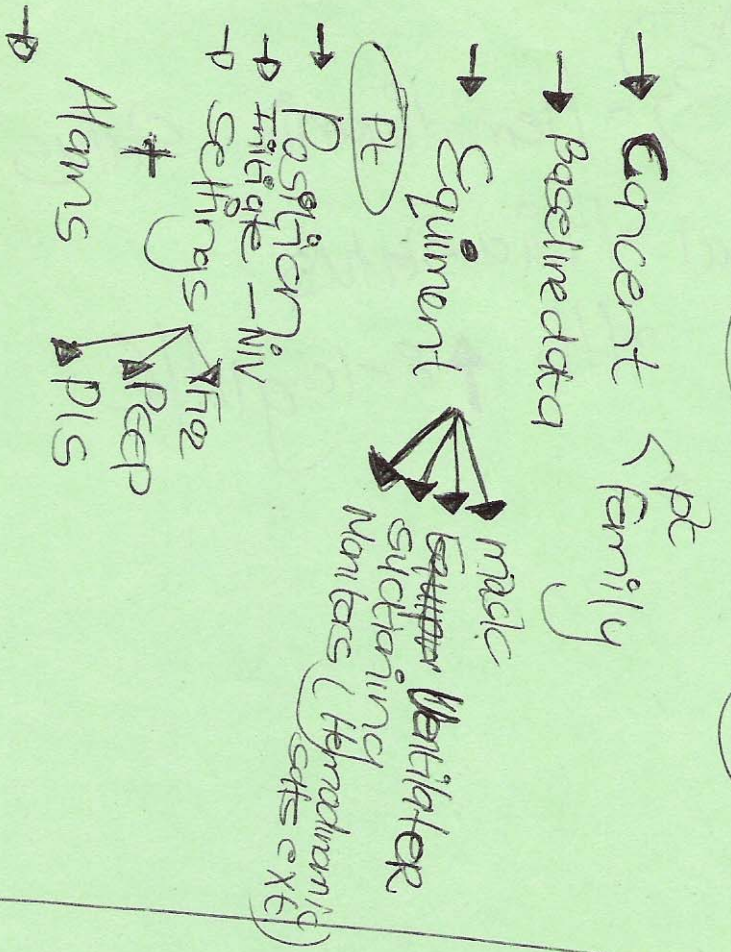 → Concent < pt
family
→ Baseline data
→ Equiment
madc
Ventilater
suctioning
Monitors (Hemodinamic
sats ext)
Pt
→ Position
→ Initiate - NIV
→ settings
Fio2
PEEP
PIS
+
Alams
→